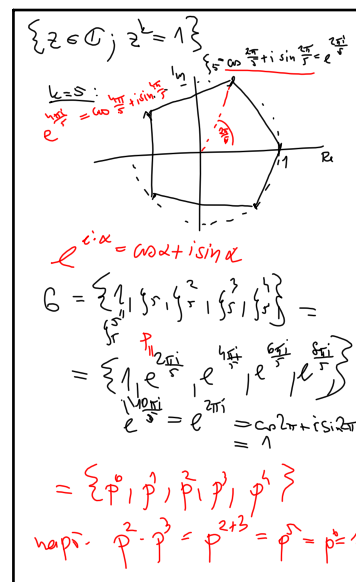 {z ∈ ℂ; z^k = 1}
ζ_5 = cos 2π/5 + i sin 2π/5 = e^{2πi/5}
Im
k = 5:
e^{4πi/5} = cos 4π/5 + i sin 4π/5
2π/5
1
Re
e^{i·α} = cos α + i sin α
G = {1, ζ_5, ζ_5^2, ζ_5^3, ζ_5^4} =
ζ_5^5
ρ
= {1, e^{2πi/5}, e^{4πi/5}, e^{6πi/5}, e^{8πi/5}}
e^{10πi/5} = e^{2πi} = cos 2π + i sin 2π
= 1
= {ρ^0, ρ^1, ρ^2, ρ^3, ρ^4}
např. ρ^2 · ρ^3 = ρ^{2+3} = ρ^5 = ρ^0 = 1